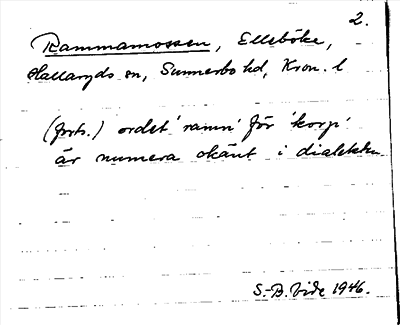 2.
Rammamossen, Elleböke,
Hallaryds sn, Sunnerbo hd, Kron. l
(forts.) ordet 'ramn' för 'korp'
är numera okänt i dialekten.
S.-B. Vide 1946.